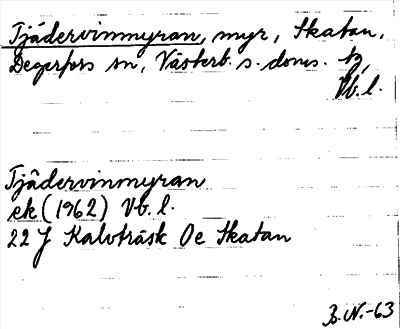 Tjädervinmyran, myr, Skatan,
Degerfors sn, Västerb. s. doms. tg,
Vb. l.
Tjädervinmyran
ek (1962) Vb. l.
22 J Kalvträsk Oe Skatan
B.N.-63